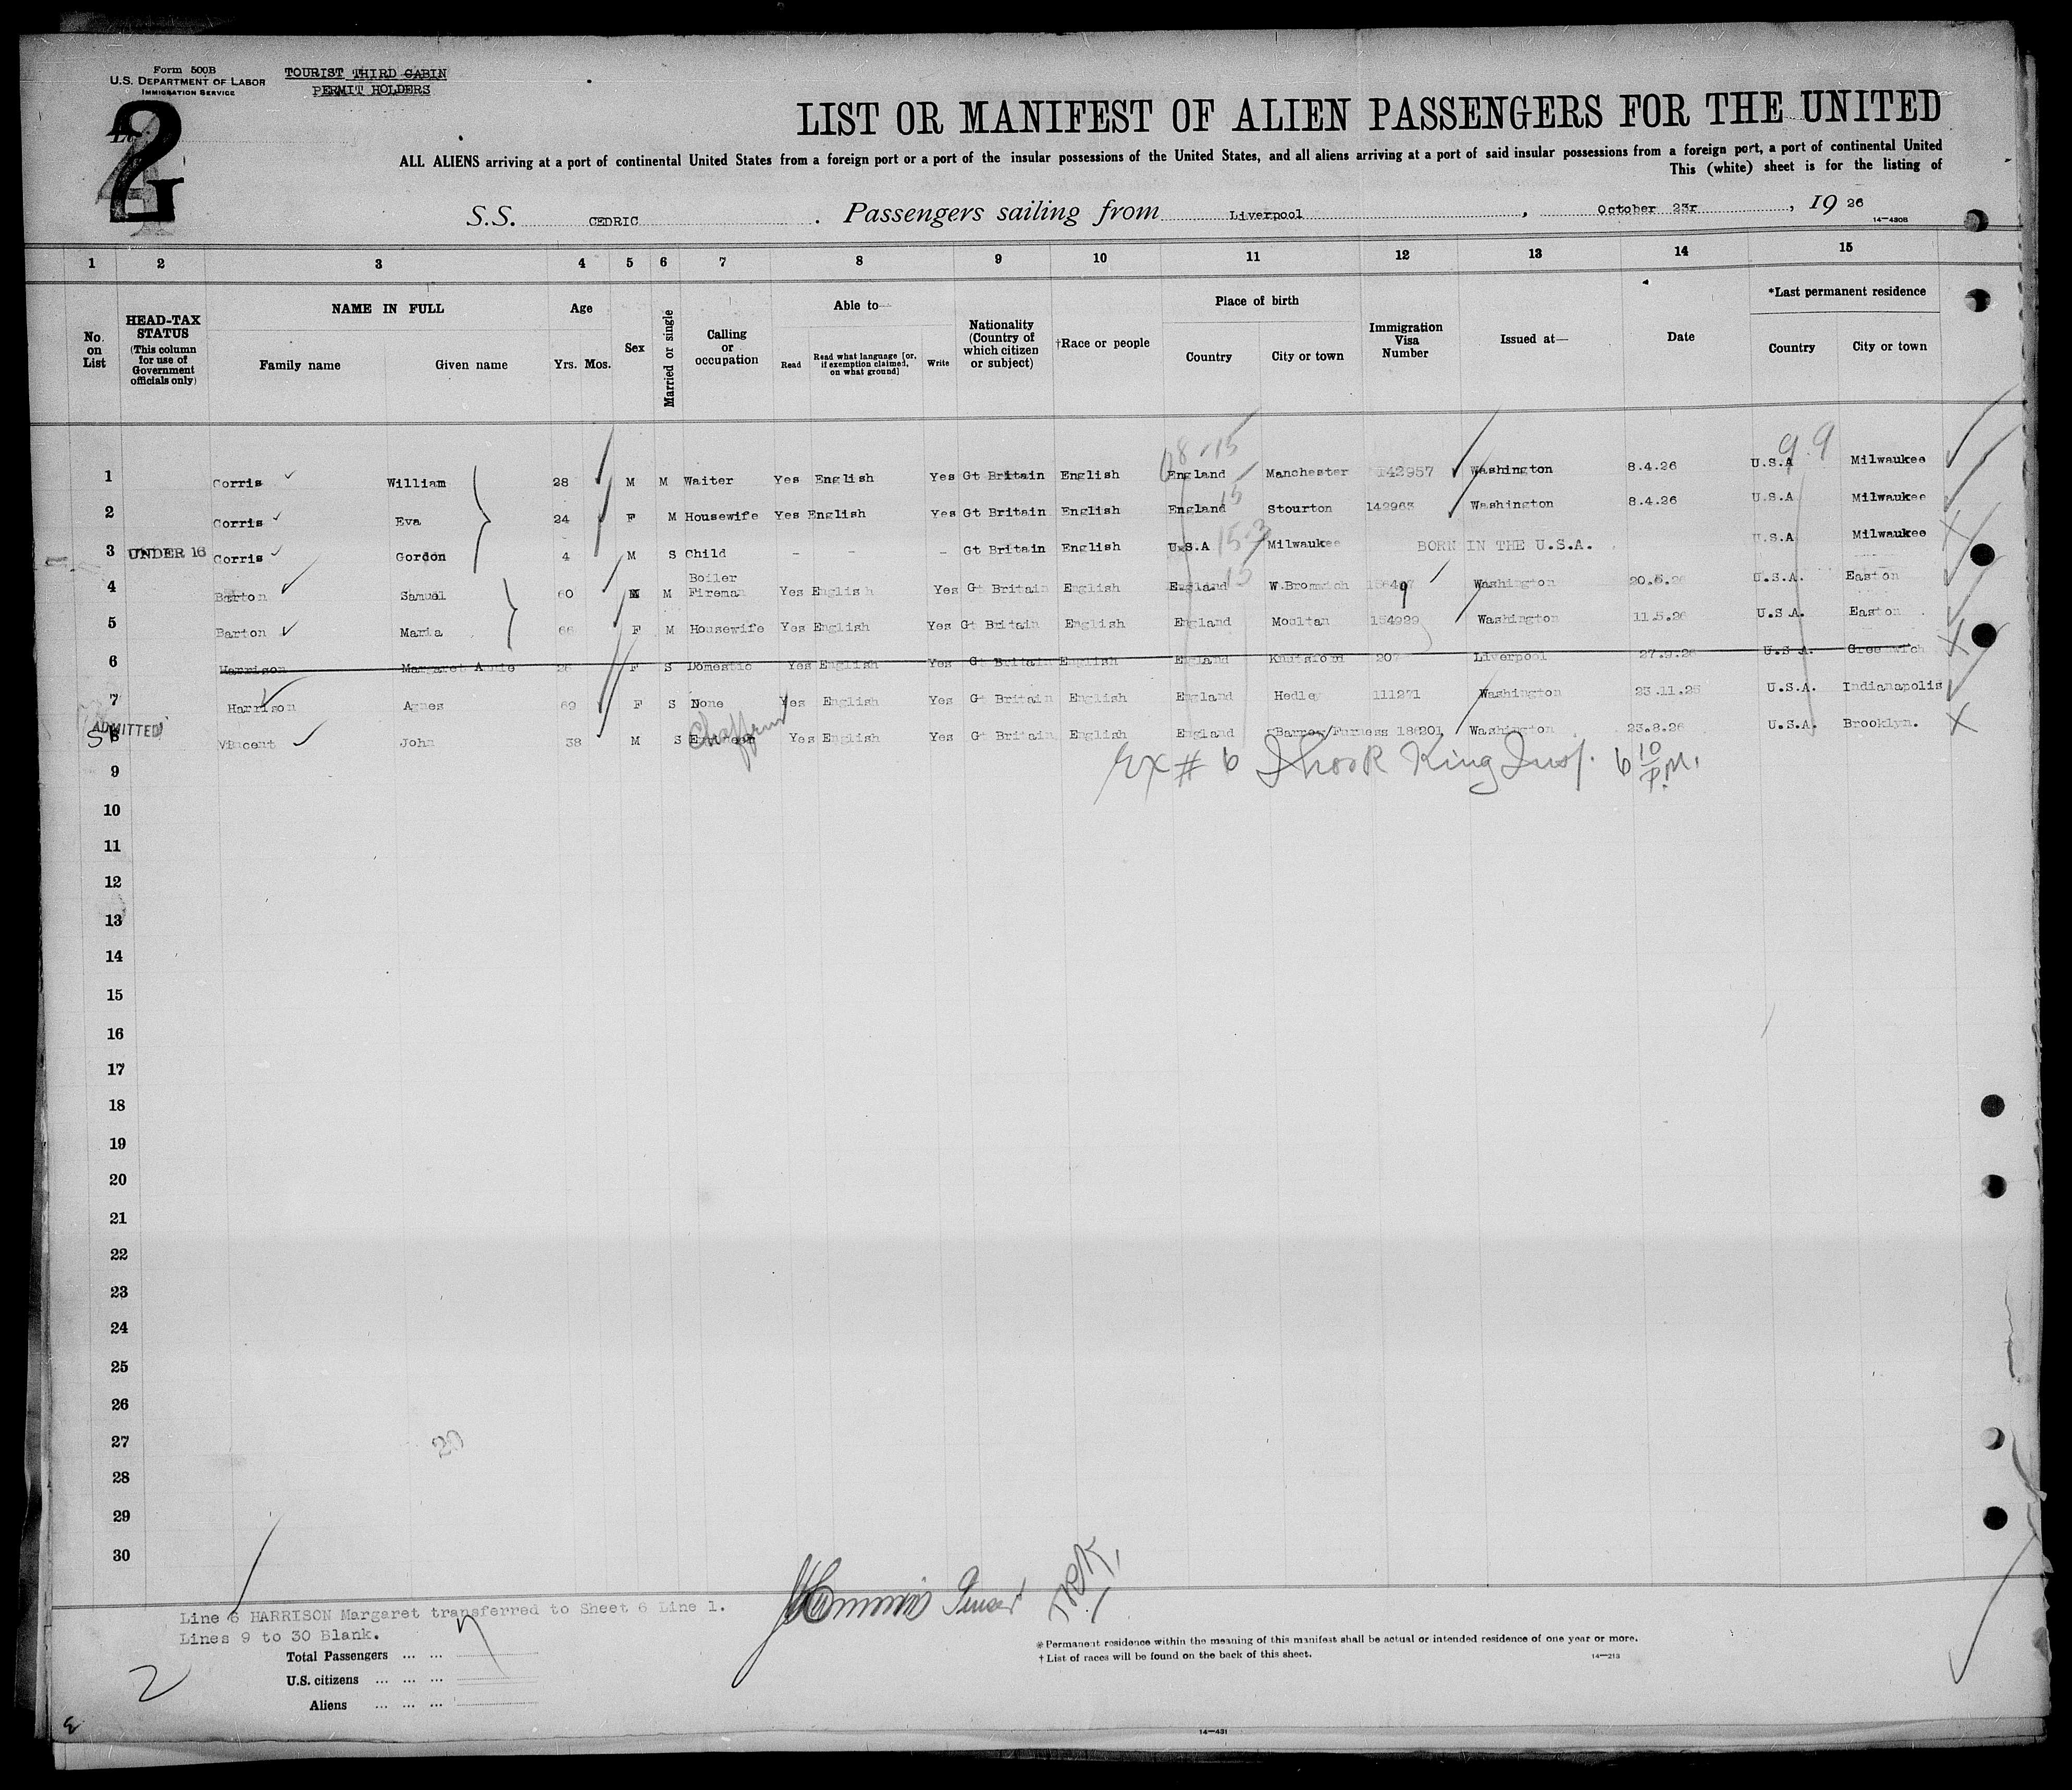 Form 500B
U.S. DEPARTMENT OF LABOR
IMMIGRATION SERVICE
TOURIST THIRD CABIN
PERMIT HOLDERS
2
LIST OR MANIFEST OF ALIEN PASSENGERS FOR THE UNITED
ALL ALIENS arriving at a port of continental United States from a foreign port or a port of the insular possessions of the United States, and all aliens arriving at a port of said insular possessions from a foreign port, a port of continental United
This (white) sheet is for the listing of
S.S. CEDRIC . Passengers sailing from Liverpool , October 23r , 19 26
14—430B
1 2 3 4 5 6 7 8 9 10 11 12 13 14 15
No. on List
HEAD-TAX STATUS (This column for use of Government officials only)
NAME IN FULL
Family name Given name
Age
Yrs. Mos.
Sex
Married or single
Calling or occupation
Able to—
Read Read what language [or, if exemption claimed, on what ground] Write
Nationality (Country of which citizen or subject)
†Race or people
Place of birth
Country City or town
Immigration Visa Number
Issued at—
Date
*Last permanent residence
Country City or town
9.9
1 Corris William 28 M M Waiter Yes English Yes Gt Britain English England Manchester 142957 Washington 8.4.26 U.S.A Milwaukee
2 Corris Eva 24 F M Housewife Yes English Yes Gt Britain English England 15 Stourton 142963 Washington 8.4.26 U.S.A Milwaukee
3 UNDER 16 Corris Gordon 4 M S Child - - - Gt Britain English U.S.A Milwaukee BORN IN THE U.S.A. U.S.A Milwaukee
4 Barton Samuel 60 M M Boiler Fireman Yes English Yes Gt Britain English England 15 W.Bromwich Washington U.S.A. Easton
5 Barton Maria 66 F M Housewife Yes English Yes Gt Britain English England Moultan 154929 Washington 11.5.26 U.S.A. Easton
6 Harrison Margaret Annie 26 F S Domestic Yes English Yes Gt Britain English England Knutsford 207 Liverpool 27.9.26 U.S.A. Greenwich
7 Harrison Agnes 69 F S None Yes English Yes Gt Britain English England Hedley 111271 Washington 23.11.25 U.S.A. Indianapolis
ADMITTED
8 Vincent John 38 M S Chaffeur Yes English Yes Gt Britain English England Barrow/Furness 186201 Washington 23.8.26 U.S.A. Brooklyn.
Ex # 6 King Insp. 6 10 P.M.
9
10
11
12
13
14
15
16
17
18
19
20
21
22
23
24
25
26
27
20
28
29
30
Line 6 HARRISON Margaret transferred to Sheet 6 Line 1.
Lines 9 to 30 Blank.
Total Passengers ... ... 7
U.S. citizens ... ... ...
Aliens ... ... ...
2
*Permanent residence within the meaning of this manifest shall be actual or intended residence of one year or more.
†List of races will be found on the back of this sheet.
14—213
14—431